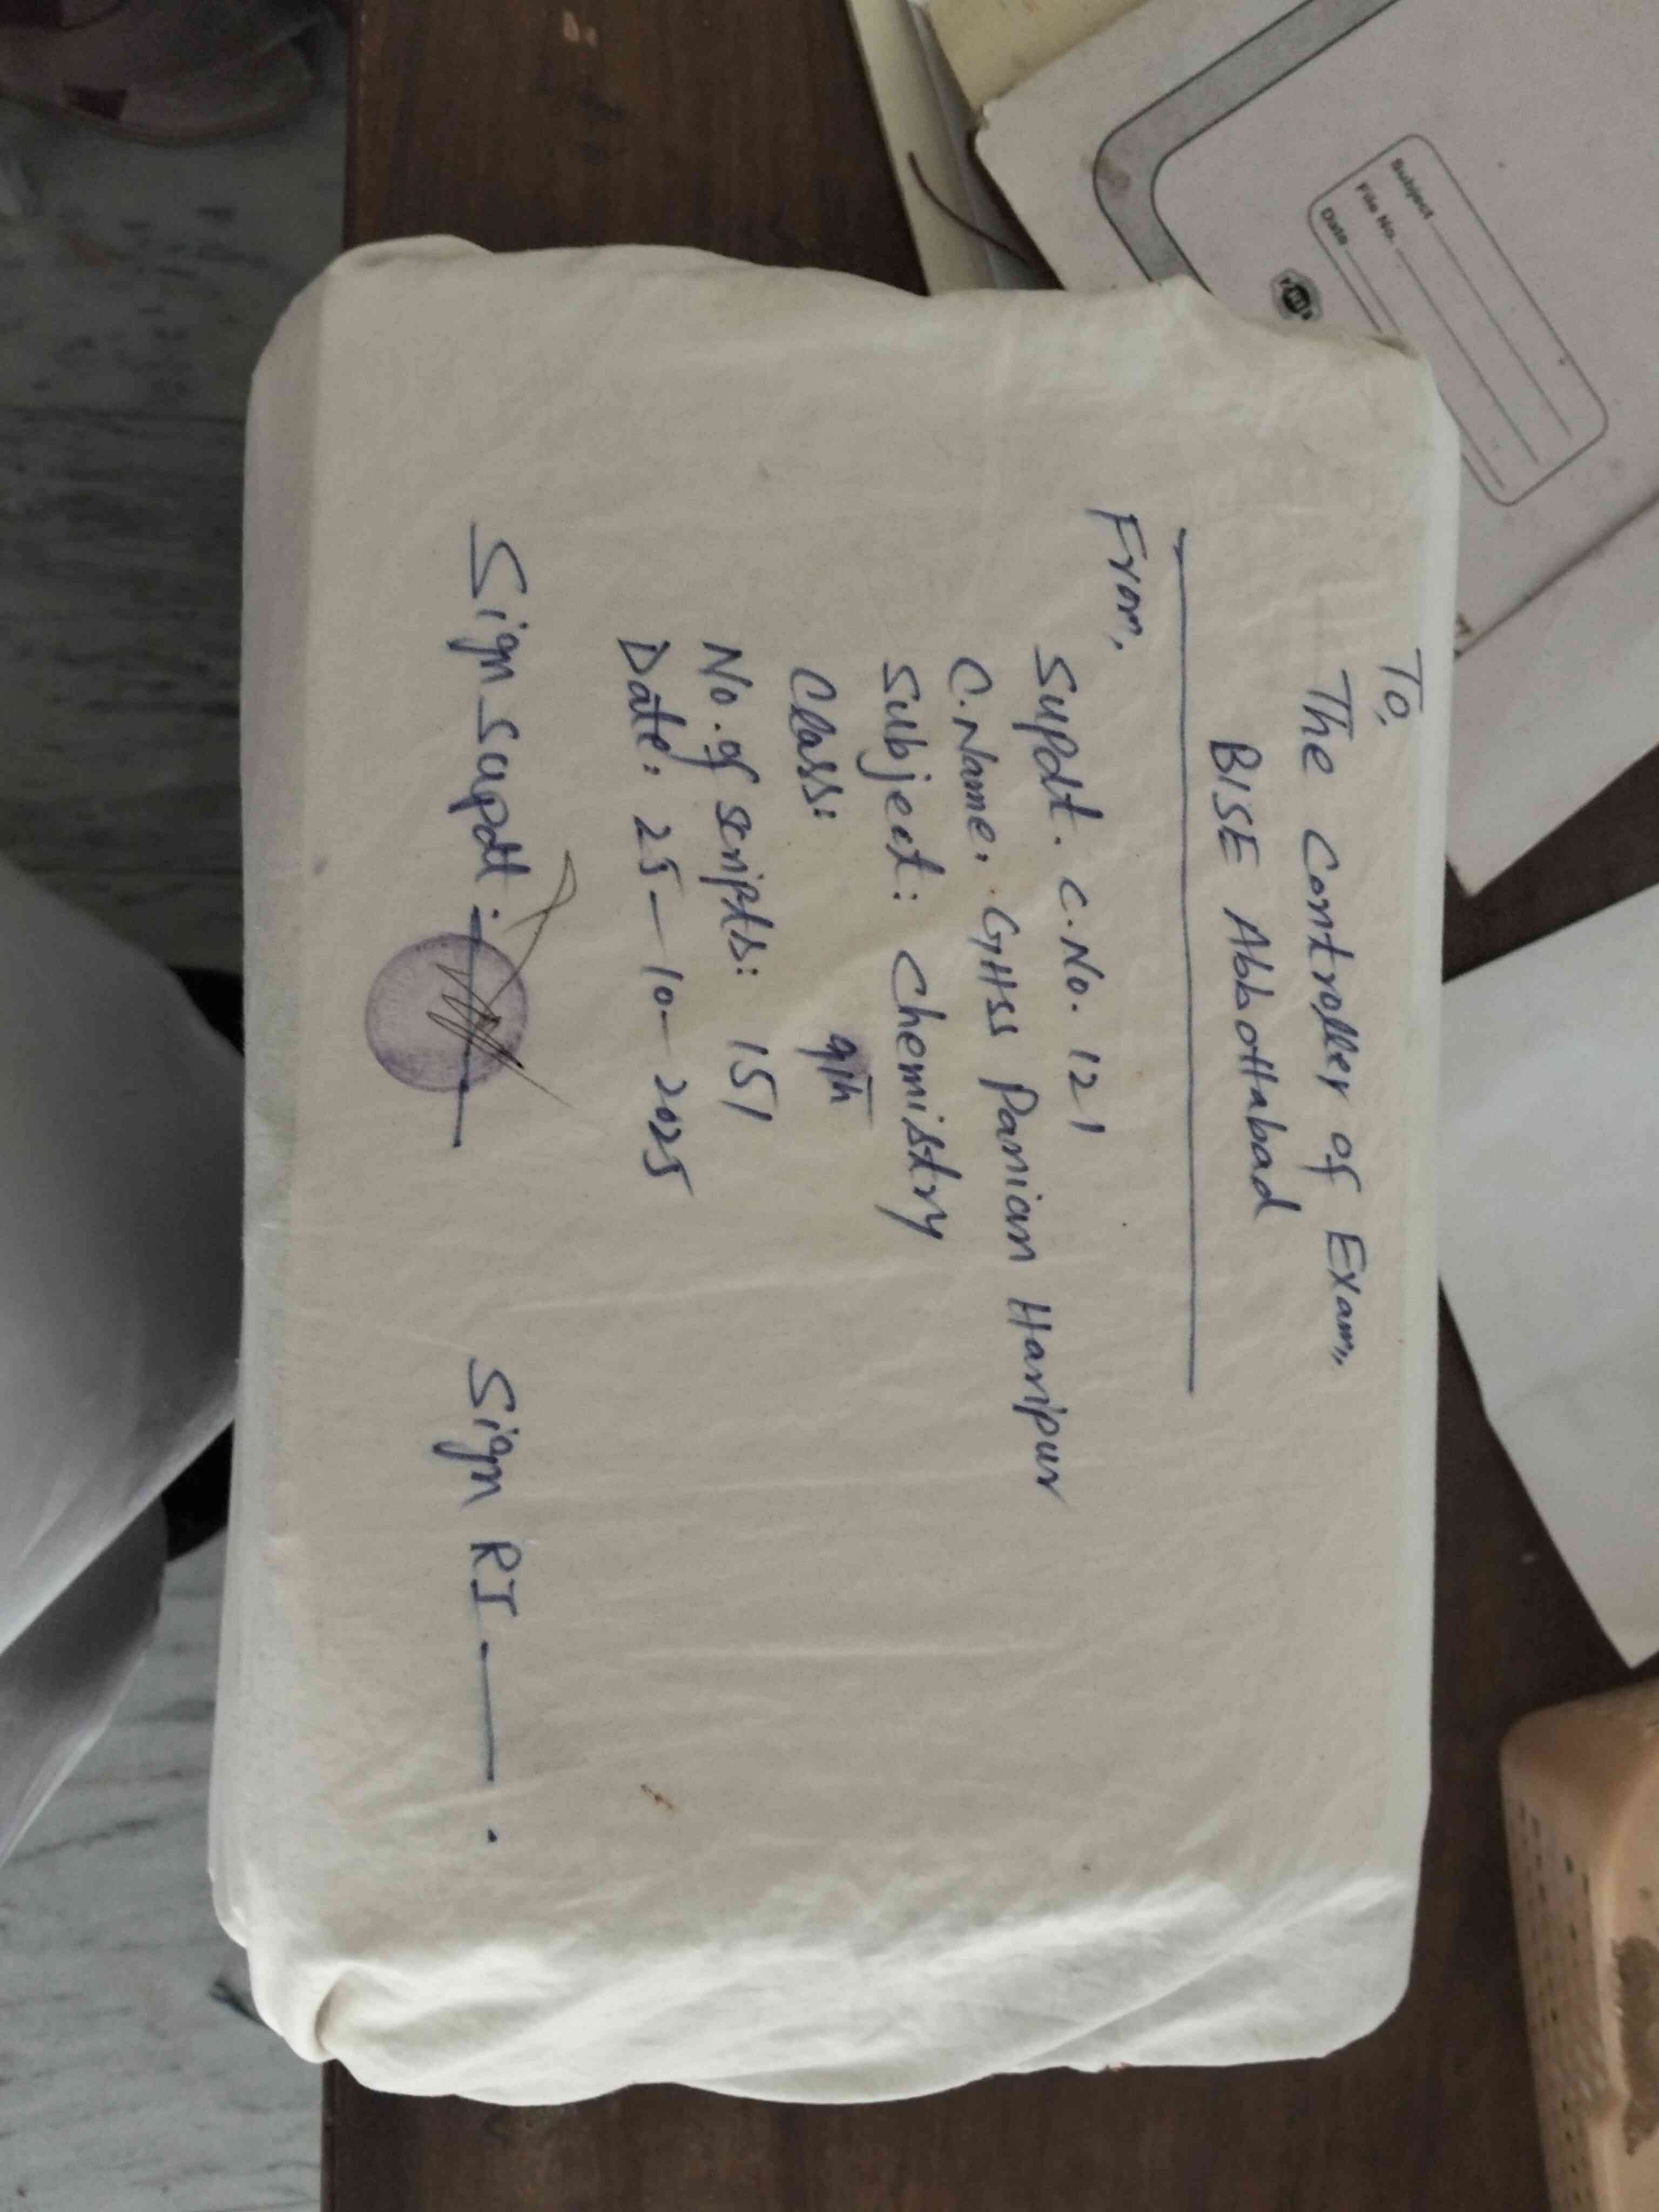 To,
The Controller of Exam,,
BISE Abbottabad
From,
Supdt. C.No. 121
C.Name: GHSS Panian Haripur
Subject: Chemistry
Class: 9th
No. of scripts: 151
Date: 25-10-2025
Sign Supdt:
Sign RI
Subject
File No.
Date